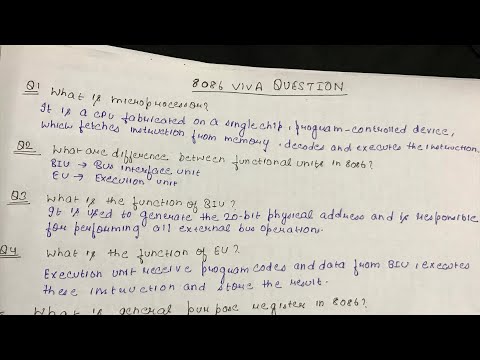 8086 VIVA QUESTION
Q1 What is microprocessor?
It is a CPU fabricated on a single chip, program-controlled device,
which fetches instruction from memory, decodes and executes the instruction.
Q2 What are difference between functional units in 8086?
BIU → Bus interface unit
EU → Execution unit
Q3 What is the function of BIU?
It is used to generate the 20-bit physical address and is responsible
for performing all external bus operation.
Q4 What is the function of EU?
Execution unit receive program codes and data from BIU, executes
these instruction and store the result.
What is general purpose register in 8086?